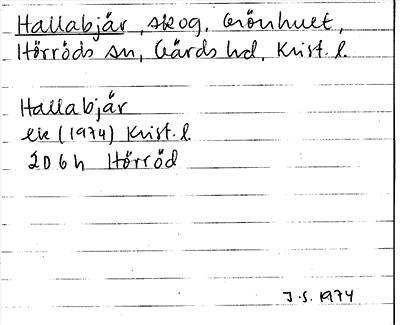 Hallabjär, skog, Grönhult,
Hörröds sn, Gärds hd, Krist. l.
Hallabjär
ek (1974) Krist. l.
2 D 6 h Hörröd
J.S. 1974